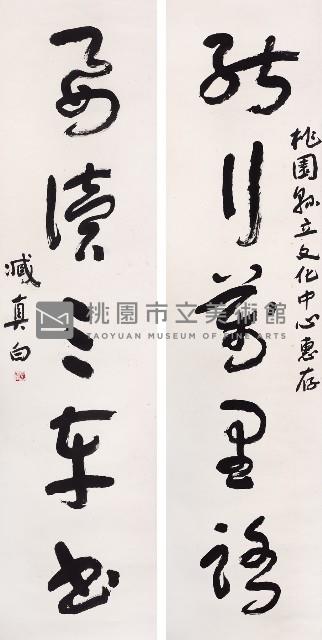 桃園縣立文化中心惠存
能行萬里路
要讀三車書
臧真白
桃園市立美術館
TAOYUAN MUSEUM OF FINE ARTS